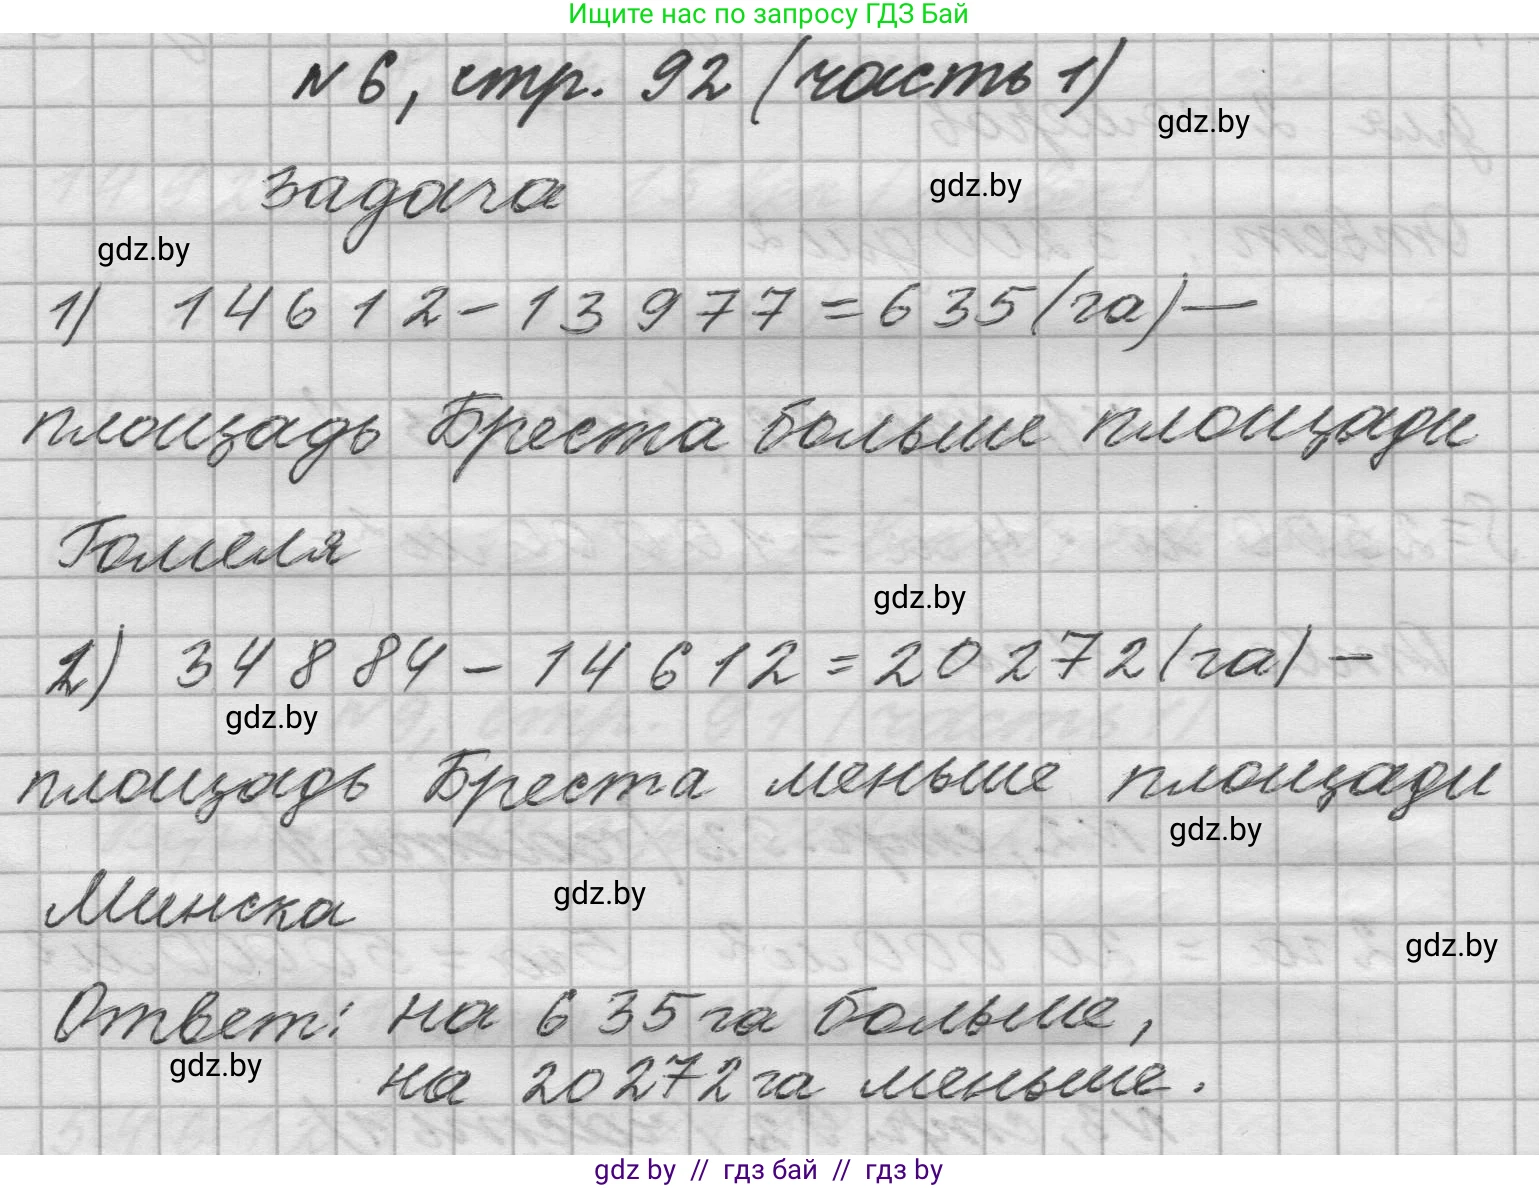 Ищите нас по запросу ГДЗ Бай
N 6, стр. 92 (часть 1)
gdz.by
задача
gdz.by
gdz.by
1) 14612-13977=635(га)—
площадь Бреста больше площади
Гомеля
gdz.by
2) 34884-14612=20272(га)-
gdz.by
площадь Бреста меньше площади
gdz.by
Минска
gdz.by
gdz.by
Ответ: на 635 га больше,
gdz.by
на 20272 га меньше.
gdz by // гдз бай // гдз by